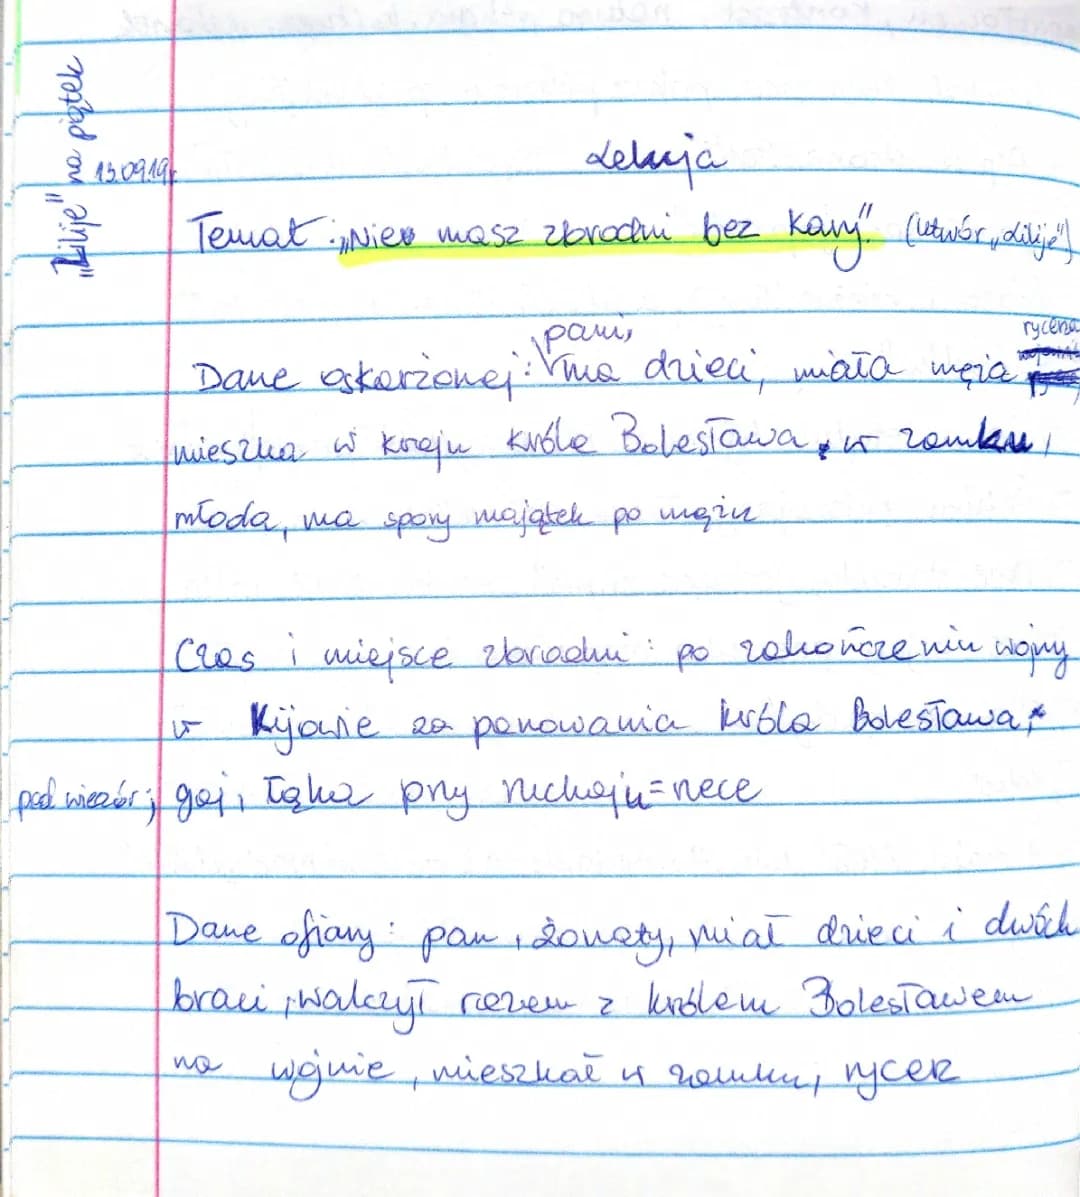 „Lilije" na piątek
13.09.19r
Lekcja
Temat: „Nie masz zbrodni bez kary". (utwór „Lilije")
Dane oskarżonej: pani, ma dzieci, miała męża rycerza
mieszka w kraju króla Bolesława, w zamku,
młoda, ma spory majątek po mężu
Czas i miejsce zbrodni: po zakończeniu wojny
w Kijowie za panowania króla Bolesława,
pod wieczór; gaj, łąka przy ruchaju=rzece
Dane ofiary: pan, żonaty, miał dzieci i dwóch
braci, walczył razem z królem Bolesławem
na wojnie, mieszkał w zamku, rycerz